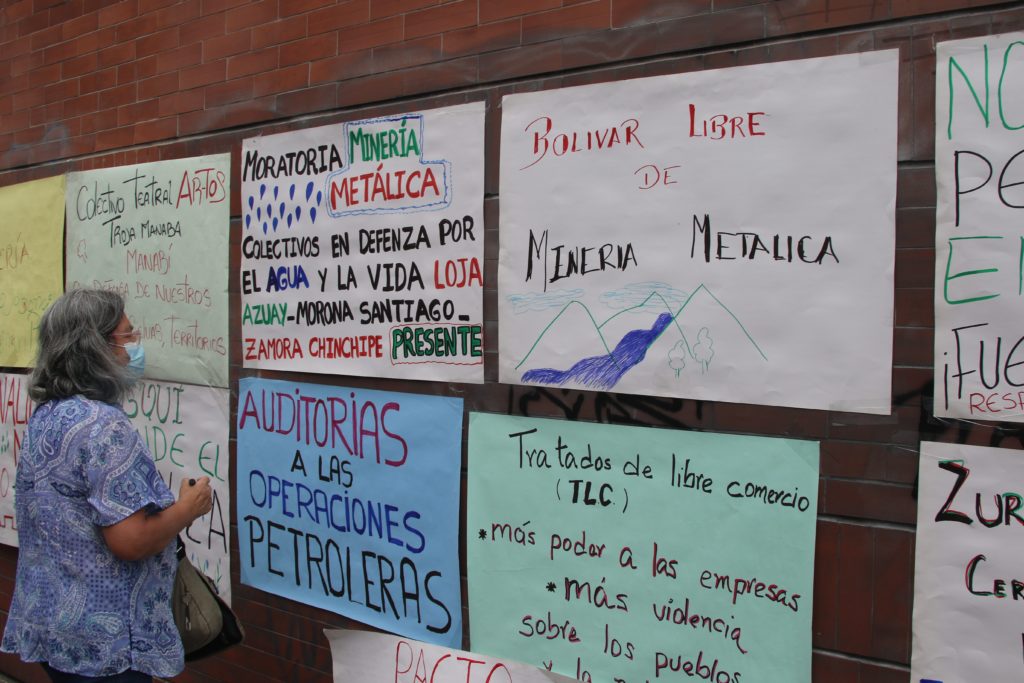 ERÍA
Colectivo Teatral ARTOS
TROJA MANABA
MANABÍ
DEFENSA DE NUESTROS
TERRITORIOS
MORATORIA MINERÍA
METÁLICA
COLECTIVOS EN DEFENZA POR
EL AGUA Y LA VIDA LOJA
AZUAY-MORONA SANTIAGO_
ZAMORA CHINCHIPE PRESENTE
BOLIVAR LIBRE
DE
MINERIA METALICA
NO
PE
EN
¡FUE
RESP
SQUI
DE EL
CA
AUDITORIAS
A LAS
OPERACIONES
PETROLERAS
Tratados de libre comercio
(TLC.)
*más poder a las empresas
*más violencia
sobre los pueblos
y la
ZUR
CER
PACTO